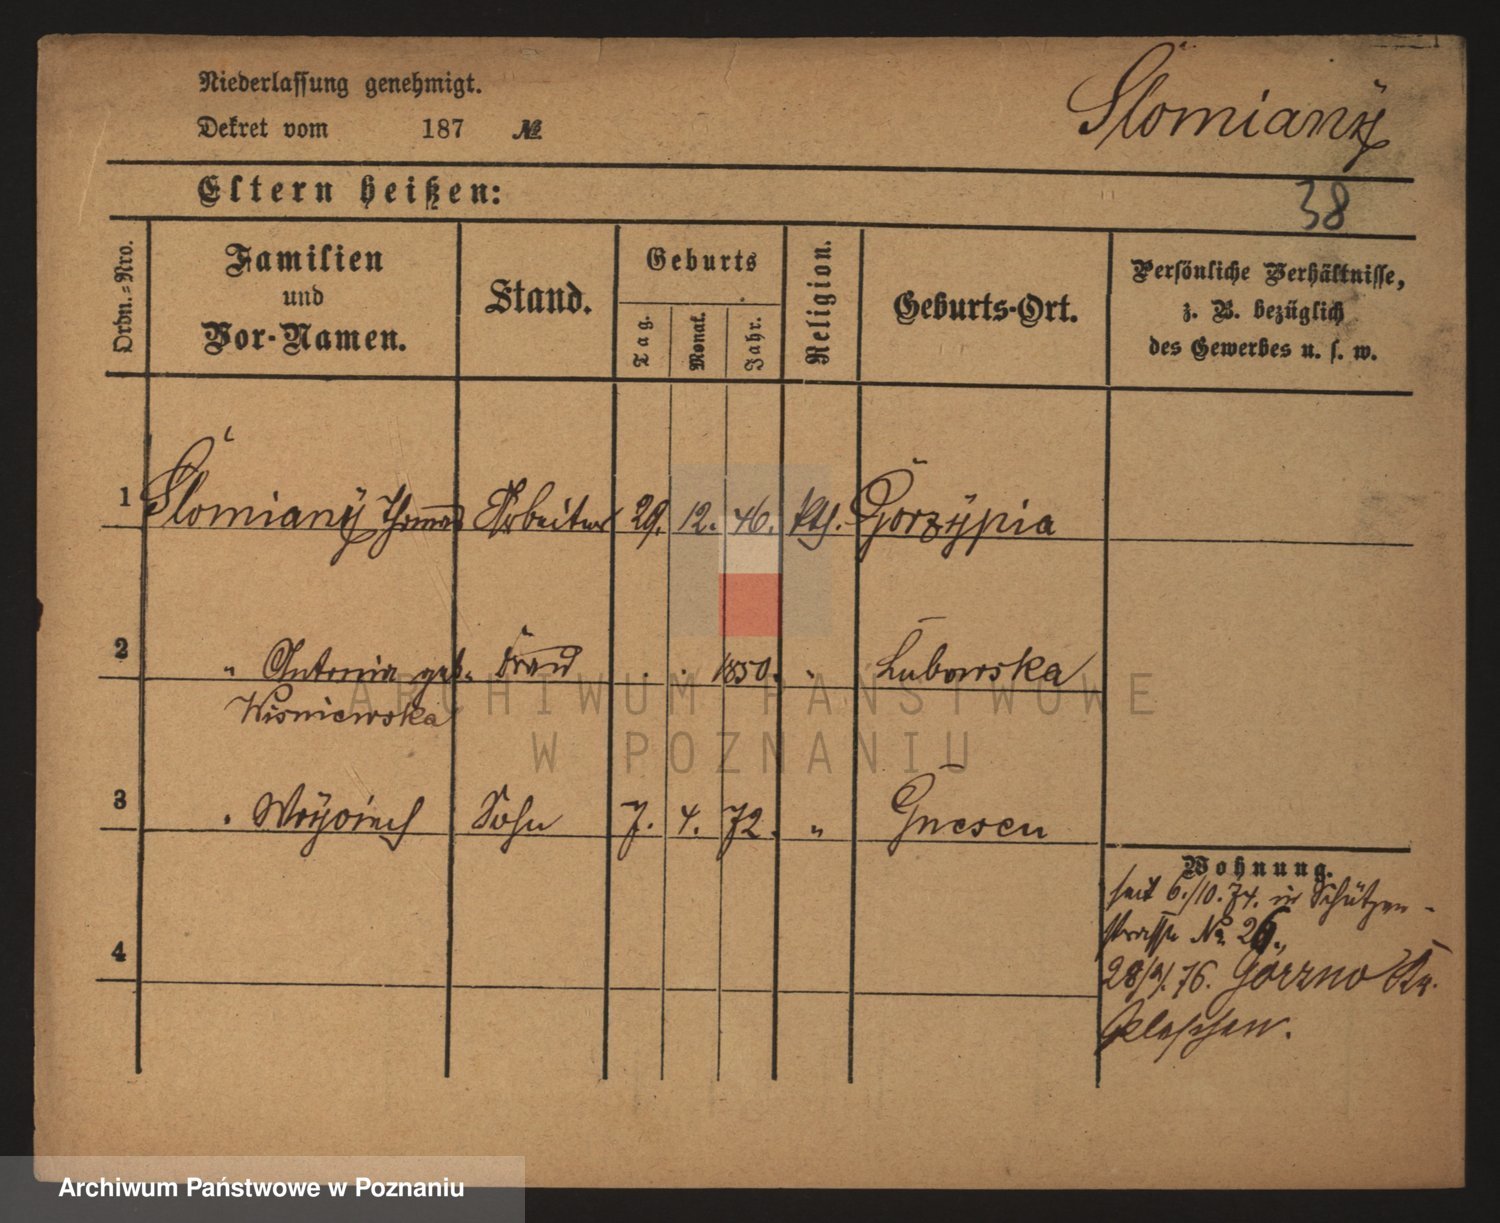 Niederlassung genehmigt.
Dekret vom 187 №
Slomiany
Eltern heißen:
38
Ordn.-Nro.
Familien
und
Vor-Namen.
Stand.
Geburts
Tag.
Monat.
Jahr.
Religion.
Geburts-Ort.
Persönliche Verhältnisse,
z. B. bezüglich
des Gewerbes u. s. w.
1 Slomiany Thomas Arbeiter 29. 12. 46. kth. Gorzypia
2 " Antonia geb. Frau . . 1850. " Lubowska
Wisniewska
3 " Woyciech Sohn 7. 4. 72. " Gnesen
Wohnung.
seit 6./10. 74. in Schützen-
strasse No 26.,
4
28/9. 76. Górzno Kr.
Pleschen.
ARCHIWUM PAŃSTWOWE
W POZNANIU
Archiwum Państwowe w Poznaniu